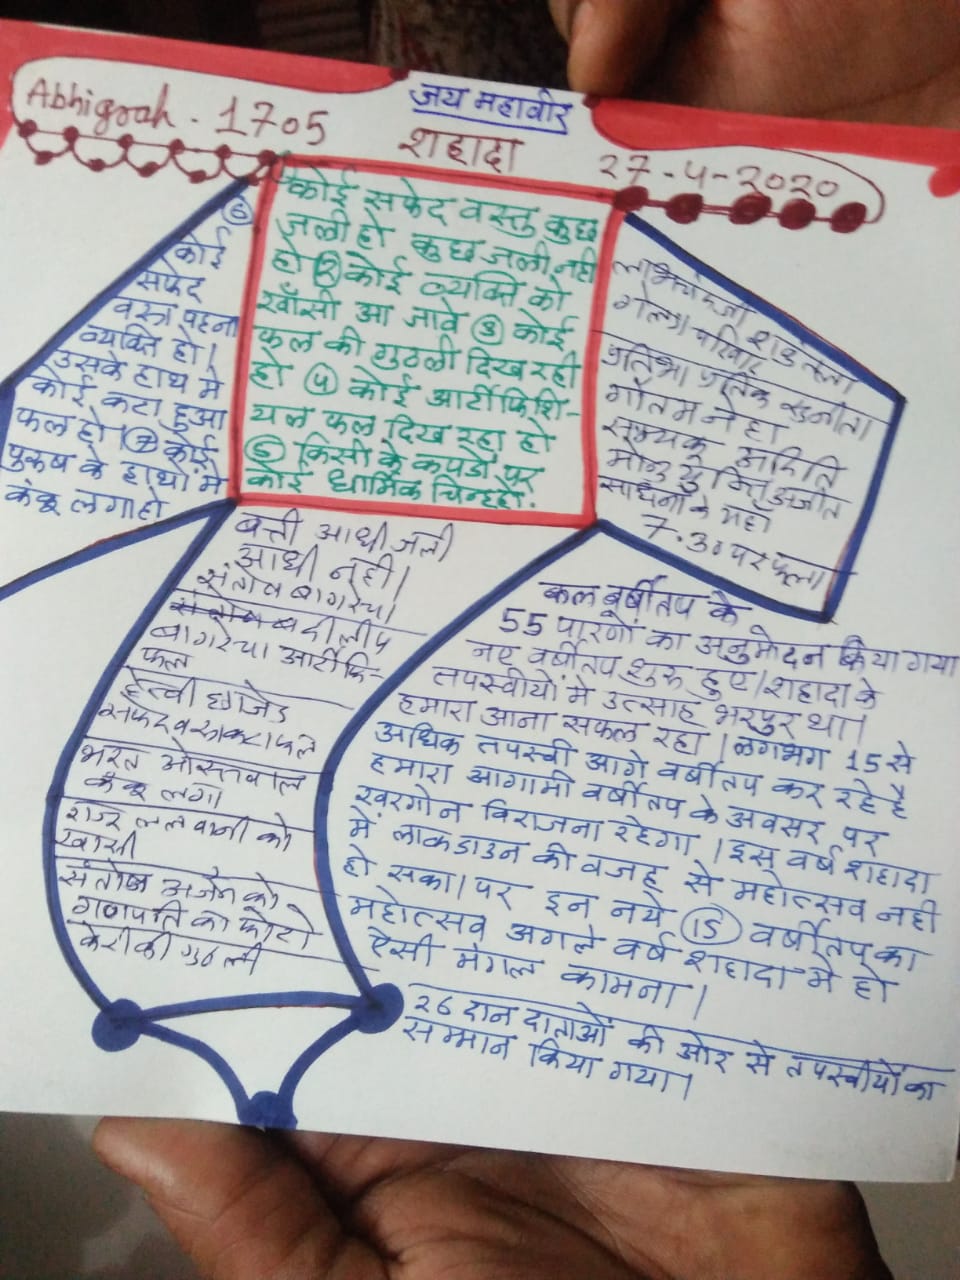 जय महावीर
Abhigrah - 1705
शहादा
27-4-2020
कोई सफेद वस्तु कुछ
जली हो कुछ जली नही
हो ② कोई व्यक्ति को
खाँसी आ जावे ③ कोई
फल की गुठली दिख रही
हो ④ कोई आर्टीफिशि-
यल फल दिख रहा हो
⑤ किसी के कपडो पर
कोई धार्मिक चिन्ह हो.
⑥
कोई
सफेद
वस्त्र पहना
व्यक्ति हो।
उसके हाथ मे
कोई कटा हुआ
फल हो। ⑦ कोई
पुरुष के हाथो मे
कंकू लगा हो
गोलेछा परिवार
प्रतिभा प्रतिक सुनीता
गौतम नेहा
सम्यक् अदिति
अजीत
साधना के यहाँ
7.30 पर फला
बत्ती आधी जली
आधी नही।
संतोष बागरेचा।
दीलीप
बागरेचा आर्टीफि-
फल
छाजेड
सफेद वस्त्र कटा फल
भरत ओस्तवाल
कंकू लगा
ललवानी को
खासी
संतोष अजैन को
गणपति का फोटो
केरी की गुठली
कल वर्षीतप के
55 पारणों का अनुमोदन किया गया
नए वर्षीतप शुरु हुए। शहादा के
तपस्वीयों मे उत्साह भरपुर था।
हमारा आना सफल रहा। लगभग 15 से
अधिक तपस्वी आगे वर्षीतप कर रहे है
हमारा आगामी वर्षीतप के अवसर पर
खरगोन विराजना रहेगा। इस वर्ष शहादा
में लाकडाउन की वजह से महोत्सव नही
हो सका। पर इन नये ⑮ वर्षीतप का
महोत्सव अगले वर्ष शहादा मे हो
ऐसी मंगल कामना।
26 दान दाताओं की ओर से तपस्वीयों का
सम्मान किया गया।